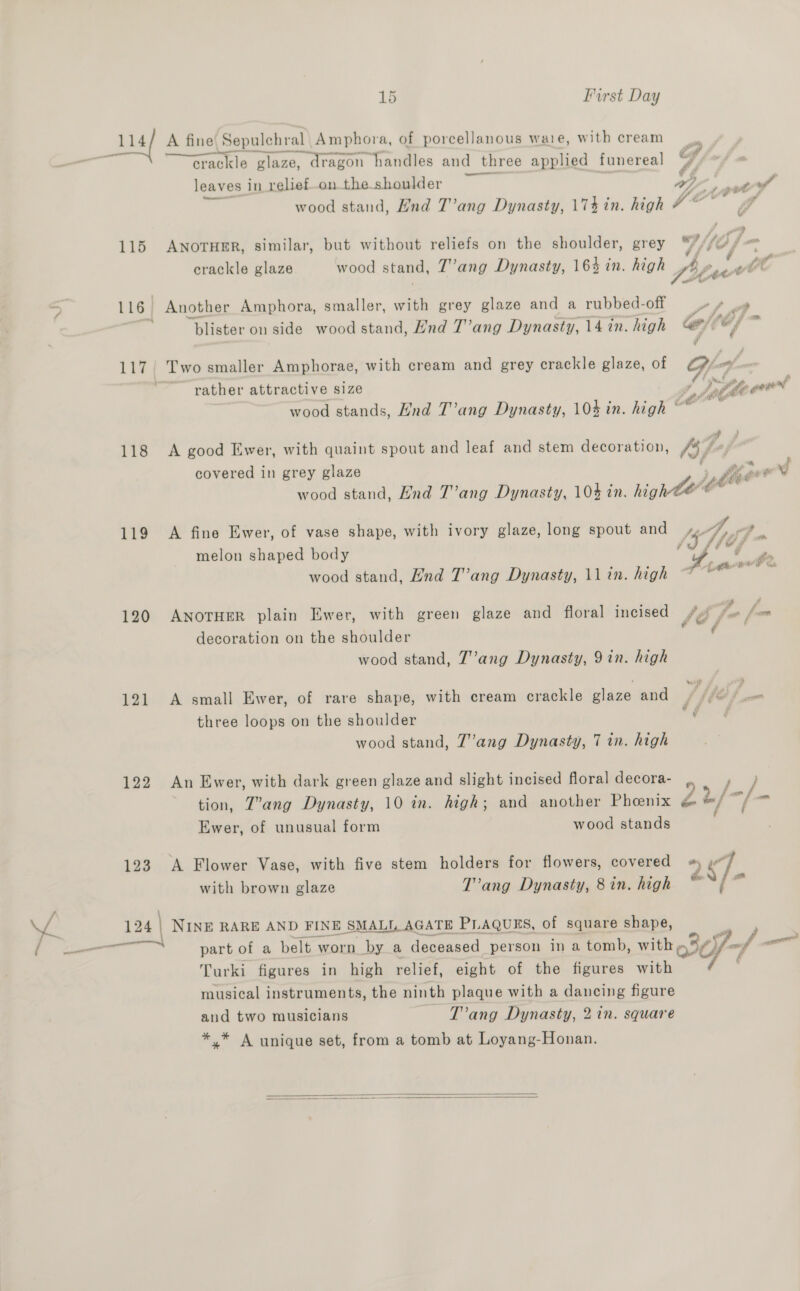 15 First Day
114 A fine Sepulchral Amphora, of porcellanous ware, with cream
crackle glaze, dragon handles and three applied funereal
leaves in relief on the shoulder
wood stand, End T'ang Dynasty, 17½ in. high
115 ANOTHER, similar, but without reliefs on the shoulder, grey
crackle glaze wood stand, T'ang Dynasty, 16½ in. high
116 Another Amphora, smaller, with grey glaze and a rubbed-off
blister on side wood stand, End T'ang Dynasty, 14 in. high
117 Two smaller Amphorae, with cream and grey crackle glaze, of
rather attractive size
wood stands, End T'ang Dynasty, 10½ in. high
118 A good Ewer, with quaint spout and leaf and stem decoration,
covered in grey glaze
wood stand, End T'ang Dynasty, 10½ in. high
119 A fine Ewer, of vase shape, with ivory glaze, long spout and
melon shaped body
wood stand, End T'ang Dynasty, 11 in. high
120 ANOTHER plain Ewer, with green glaze and floral incised
decoration on the shoulder
wood stand, T'ang Dynasty, 9 in. high
121 A small Ewer, of rare shape, with cream crackle glaze and
three loops on the shoulder
wood stand, T'ang Dynasty, 7 in. high
122 An Ewer, with dark green glaze and slight incised floral decora-
tion, T'ang Dynasty, 10 in. high; and another Phœnix
Ewer, of unusual form wood stands
123 A Flower Vase, with five stem holders for flowers, covered
with brown glaze T'ang Dynasty, 8 in. high
124 NINE RARE AND FINE SMALL AGATE PLAQUES, of square shape,
part of a belt worn by a deceased person in a tomb, with
Turki figures in high relief, eight of the figures with
musical instruments, the ninth plaque with a dancing figure
and two musicians T'ang Dynasty, 2 in. square
*** A unique set, from a tomb at Loyang-Honan.